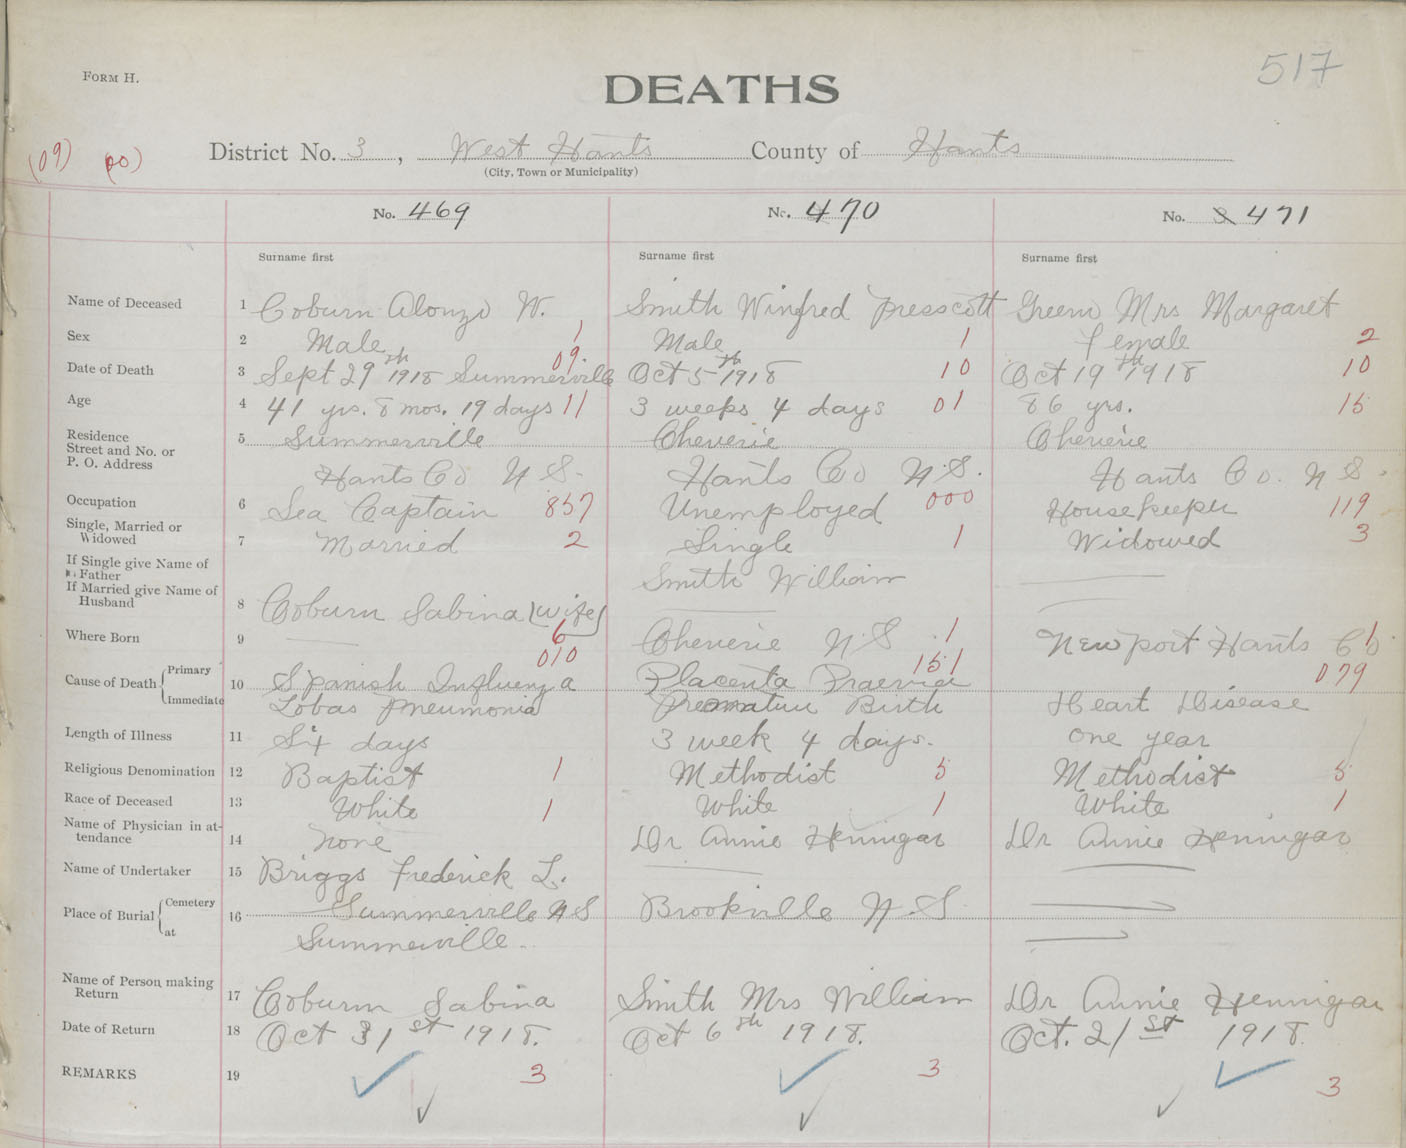 517
FORM H.
DEATHS
(09) (00) District No. 3, West Hants County of Hants
(City, Town or Municipality)
No. 469 No. 470 No. 471
Surname first Surname first Surname first
Name of Deceased 1 Coburn Alonzo W. Smith Winfred Presscott Green Mrs Margaret
Sex 2 Male 1 Male 1 female 2
Date of Death 3 Sept 29th 1918 Summerville 09 Oct 5th 1918 10 Oct 19th 1918 10
Age 4 41 yrs. 8 mos. 19 days 11 3 weeks 4 days 01 86 yrs. 15
Residence
Street and No. or
P. O. Address
5 Summerville Cheverie Cheverie
Hants Co N S. Hants Co N.S. Hants Co. N S.
Occupation 6 Sea Captain 857 Unemployed 000 Housekeeper 119
Single, Married or
Widowed
7 Married 2 Single 1 Widowed 3
If Single give Name of
Father
Smith William
If Married give Name of
Husband
8 Coburn Sabina (wife)
Where Born 9 6 Cheverie N S. 1 Newport Hants Co 1
010 151 079
Cause of Death { Primary Immediate
10 Spanish Influenza Placenta Praevia
Lobas pneumonia Premature Birth Heart Disease
Length of Illness 11 Six days 3 week 4 days. one year
Religious Denomination 12 Baptist 1 Methodist 5 Methodist 5
Race of Deceased 13 White 1 White 1 White 1
Name of Physician in at-
tendance
14 none Dr Annie Hennigar Dr Annie Hennigar
Name of Undertaker 15 Briggs Frederick L.
Place of Burial { Cemetery at
16 Summerville N S Brookville N.S
Summerville.
Name of Person making
Return
17 Coburn Sabina Smith Mrs William Dr Annie Hennigar
Date of Return 18 Oct 31st 1918. Oct 6th 1918. Oct. 21st 1918.
REMARKS 19 3 3 3